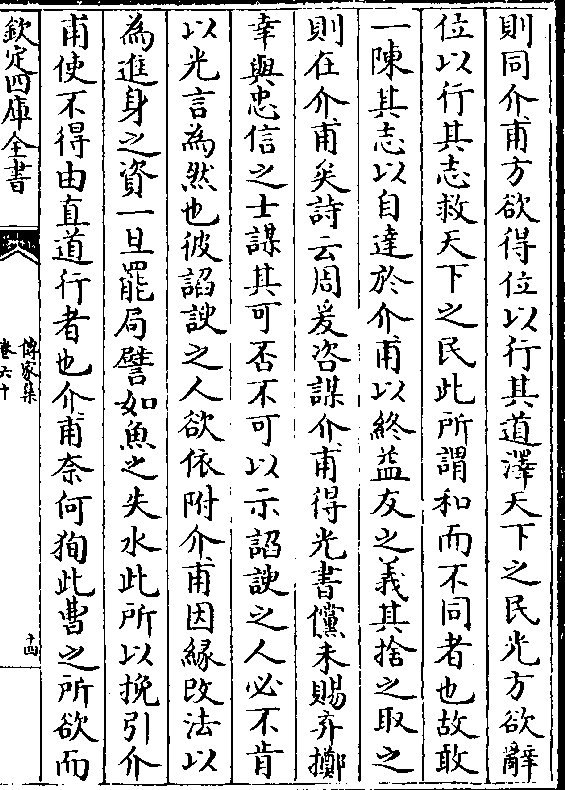 則同介甫方欲得位以行其道澤天下之民光方欲辭
位以行其志救天下之民此所謂和而不同者也故敢
一陳其志以自達於介甫以終益友之義其捨之取之
則在介甫矣詩云周爰咨謀介甫得光書儻未賜弃擲
幸與忠信之士謀其可否不可以示諂諛之人必不肯
以光言為然也彼諂諛之人欲依附介甫因縁改法以
為進身之資一旦罷局譬如魚之失水此所以挽引介
甫使不得由直道行者也介甫奈何狥此曹之所欲而
欽定四庫全書
傳家集
卷六十
十四